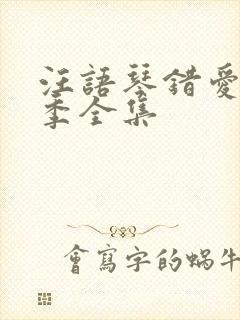 汪語琴錯愛
季全集
會寫字的蝸牛